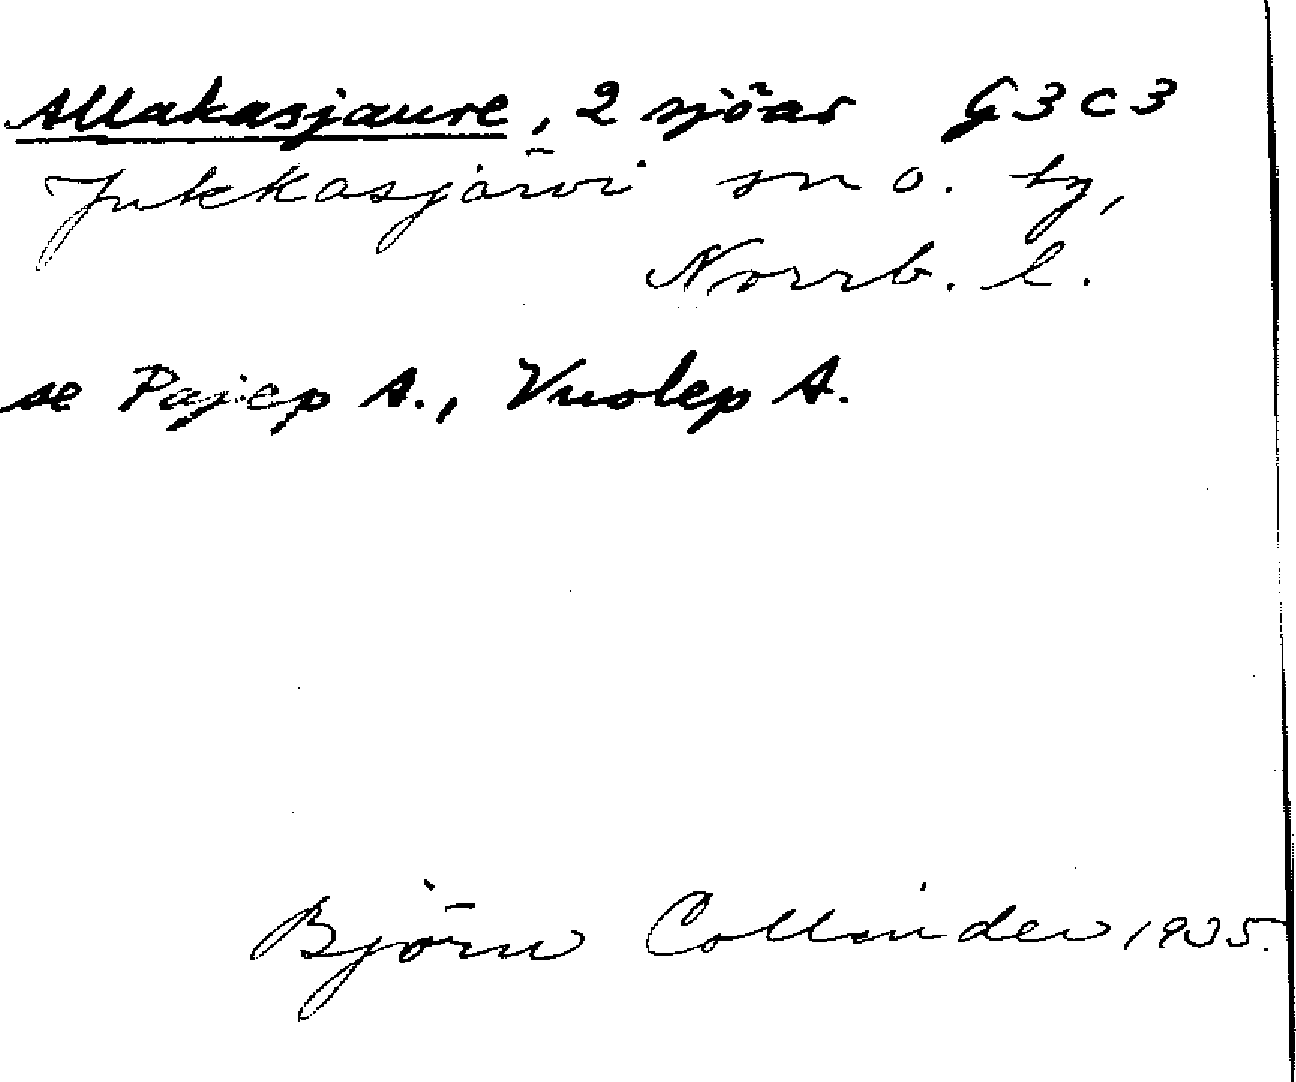 Allakasjaure, 2 sjöar G3C3
Jukkasjärvi sn o. ty,
Norrb. l.
se Pajep A., Vuolep A.
Björn Collinder 1935.